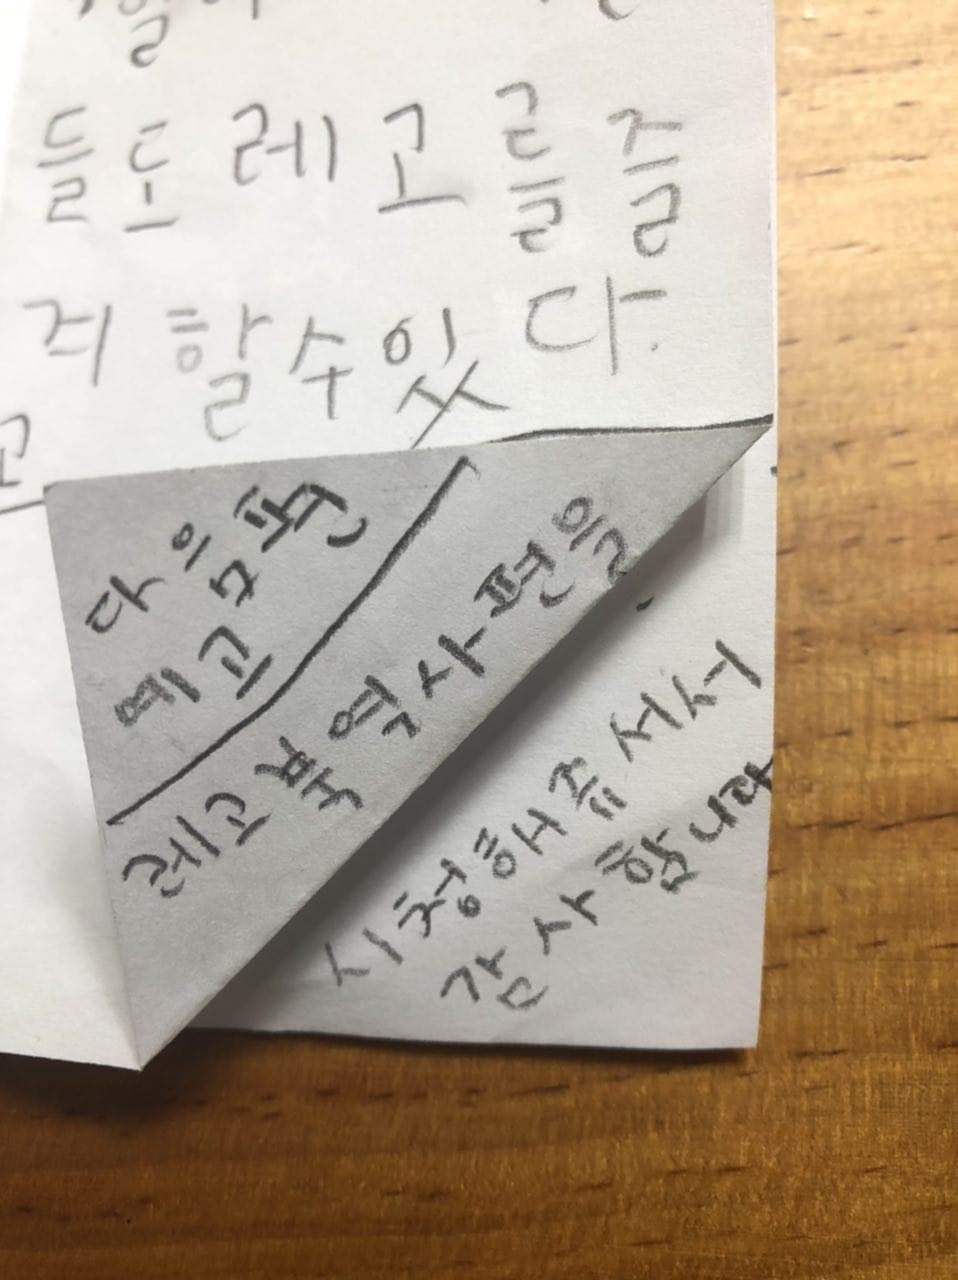 들도 레고를즐
겨 할수있다.
고
다음편
예고
레고북 역사편을
시청해쥬셔서
감사합니다